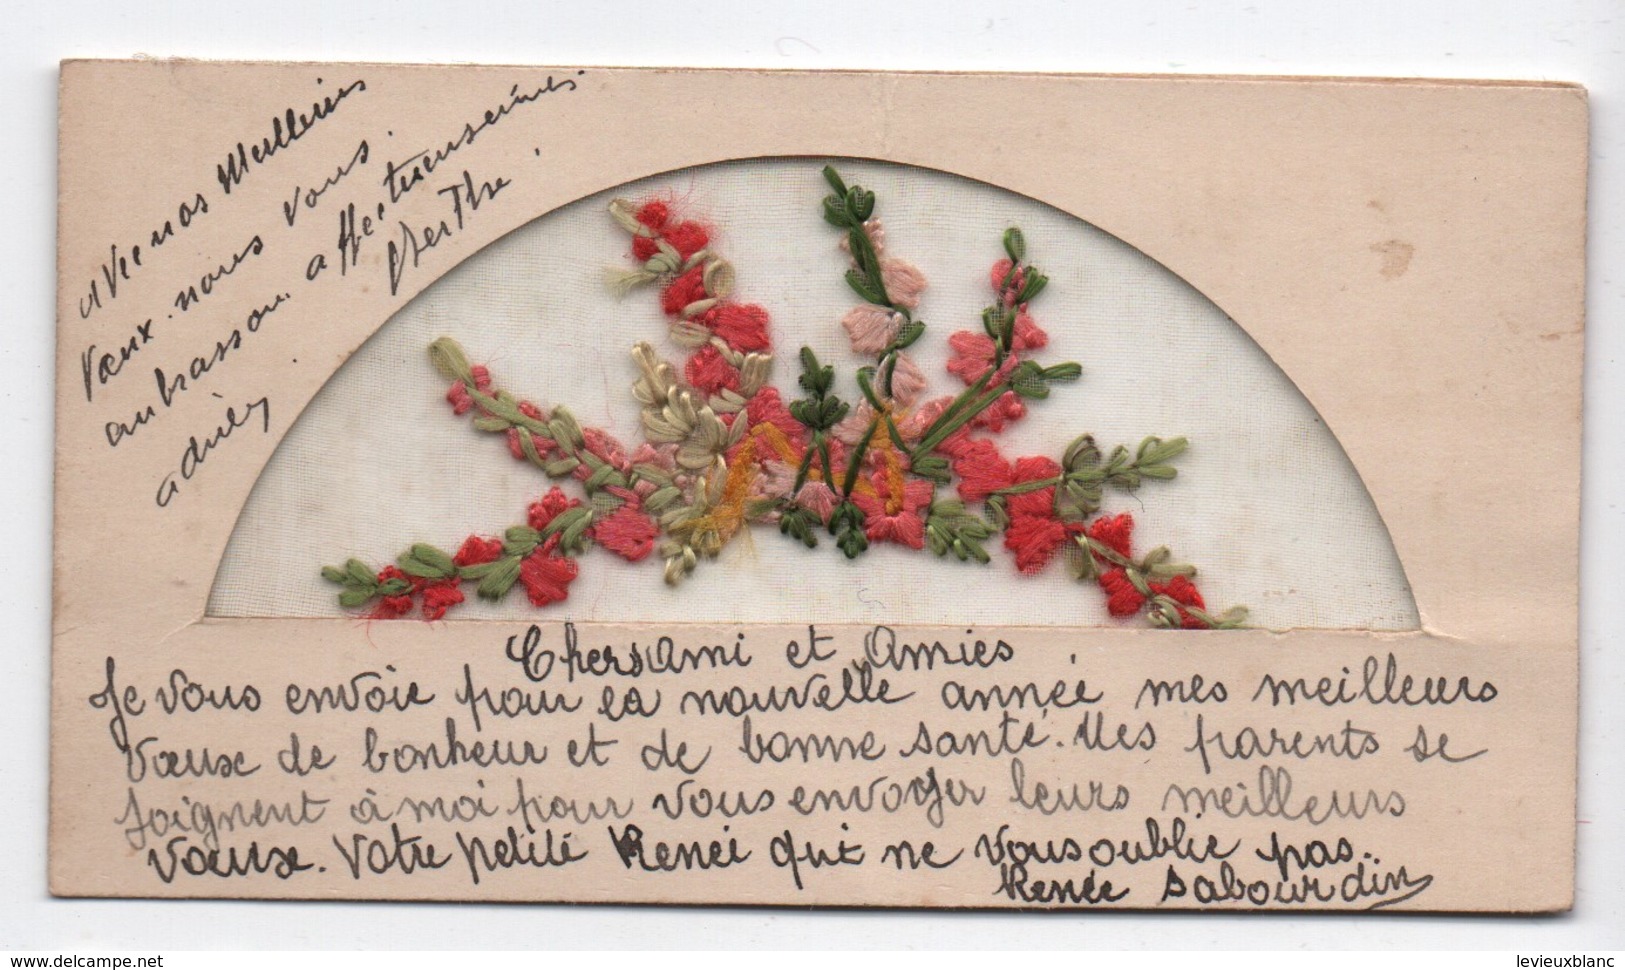 avec nos Meilleurs
Vœux. nous vous.
anbrasson. affectueusements.
Berthe.
Chers Ami et Amies.
Je vous envoie pour la nouvelle année mes meilleurs
vœux de bonheur et de bonne santé. Mes parents se
joignent à moi pour vous envoyer leurs meilleurs
vœux. Votre petite Renée qui ne vous oublie pas..
Renée Sabourdin
www.delcampe.net
levieuxblanc